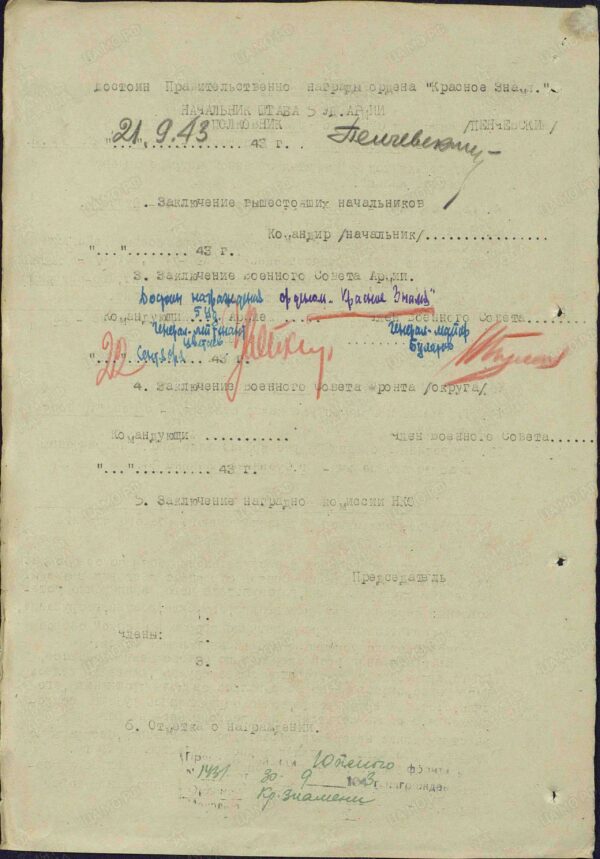 Достоин Правительственно награды ордена "Красное Знам."
НАЧАЛЬНИК ШТАБА 5 УД.АРМИИ
ПОЛКОВНИК /ПЕНЧЕВСКИЙ/
21.9.43 "...".......... 43 г. Пенчевский
. Заключение вышестоящих начальников
Командир /начальник/................
"..."........ 43 г.
3. Заключение Военного Совета Армии.
Достоин награждения орденом "Красное Знамя"
Командующий Армие Член Военного Совета
Гвд.
Генерал-лейтенант Генерал-майор
Цветаев Булатов
"22" Сентября 43 г.
4. Заключение Военного Совета Фронта /округа/
Командующи ............ Член Военного Совета......
"..."........... 43 г.
5. Заключение наградно комиссии НКО
Председатель
1.
Члены: 2.
3.
6. Отметка о награждении.
Южного фронта
N 1431 30. 9 1943 награжден
Кр. Знамени